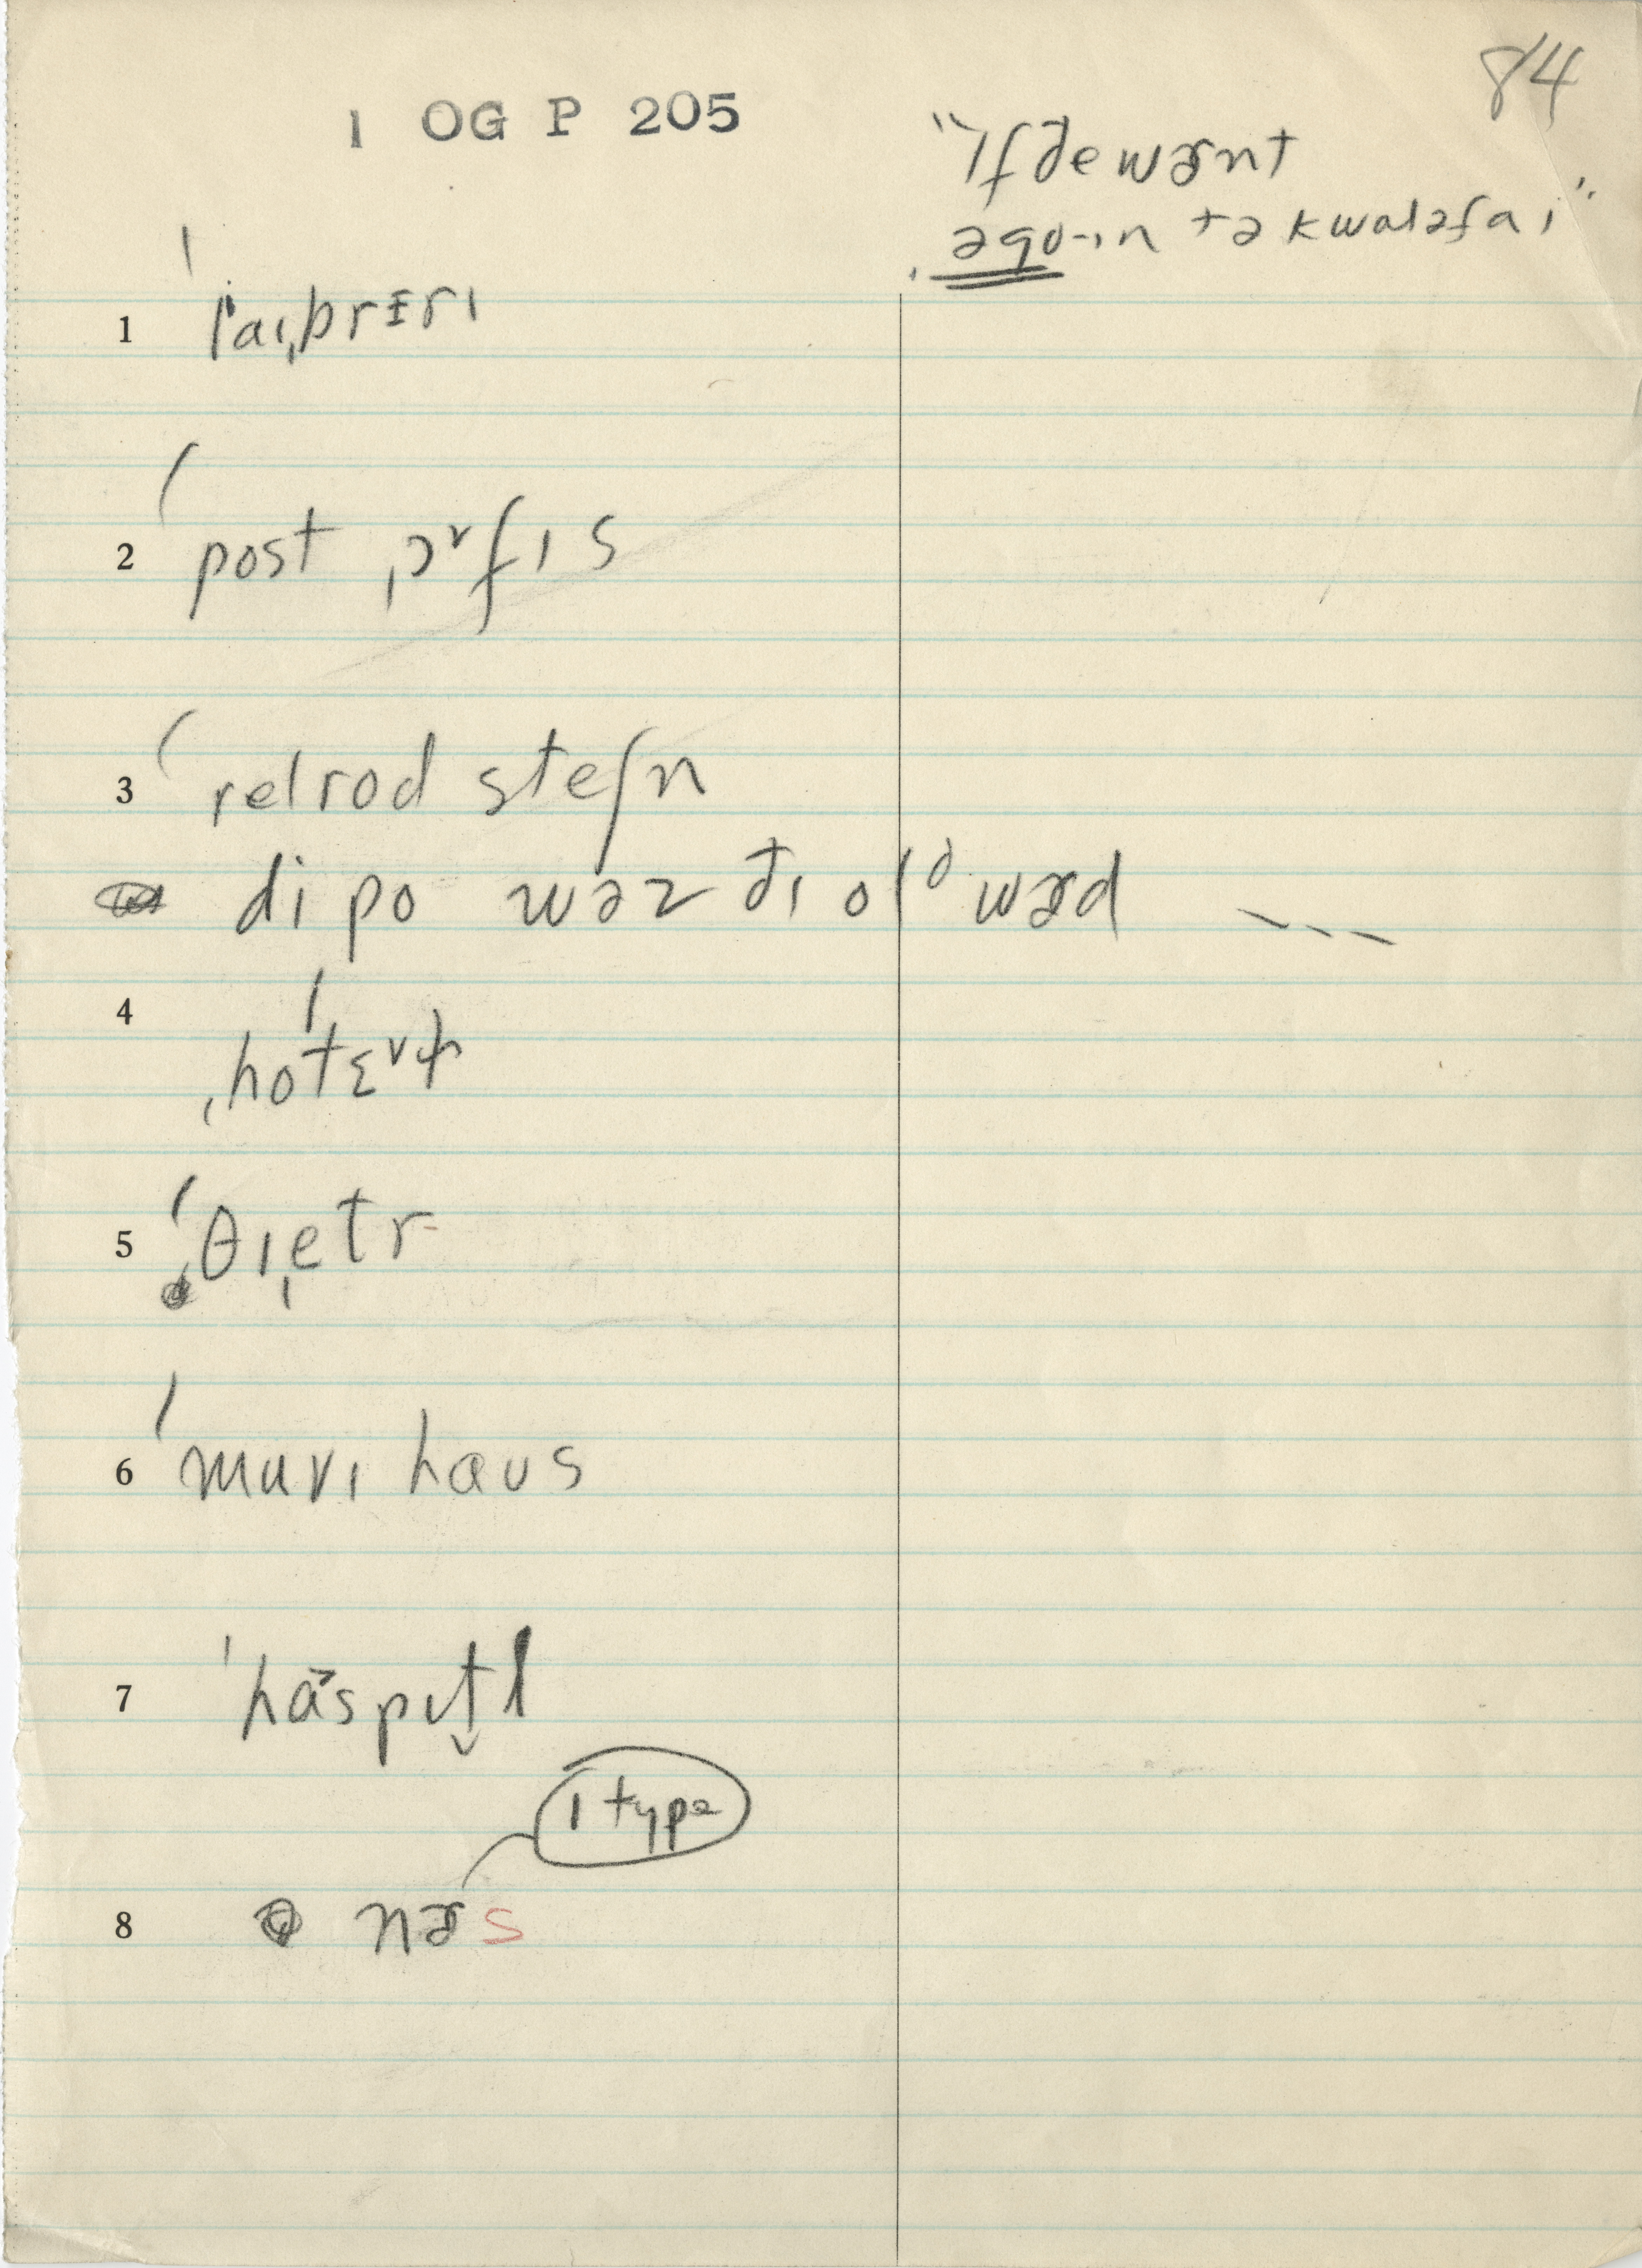 84
1 OG P 205
"ɪf ðe wɚnt
əgo-ɪn tə kwaləfaɪ"
1 ˈlaɪˌbrɛrɪ
2 ˈpost ˌɔᵛfɪs
3 ˈrelrod steʃn
dipo wəz ðɪ olᵈ wɚd ---
4 ˌhoˈtɛᵛɫ
5 ˈθɪˌetr
6 ˈmuvɪ haus
7 ˈhɑ˃spɪt̬l
ɪ type
8 nɚs